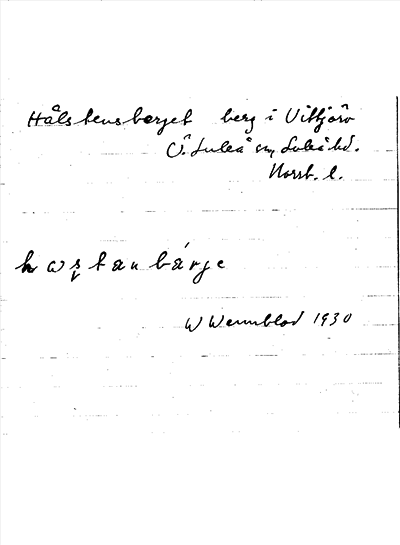 Hålstensberget berg i Vittjärv
Ö. Luleå sn, Luleå hd.
Norrb. l.
W Wennblad 1930